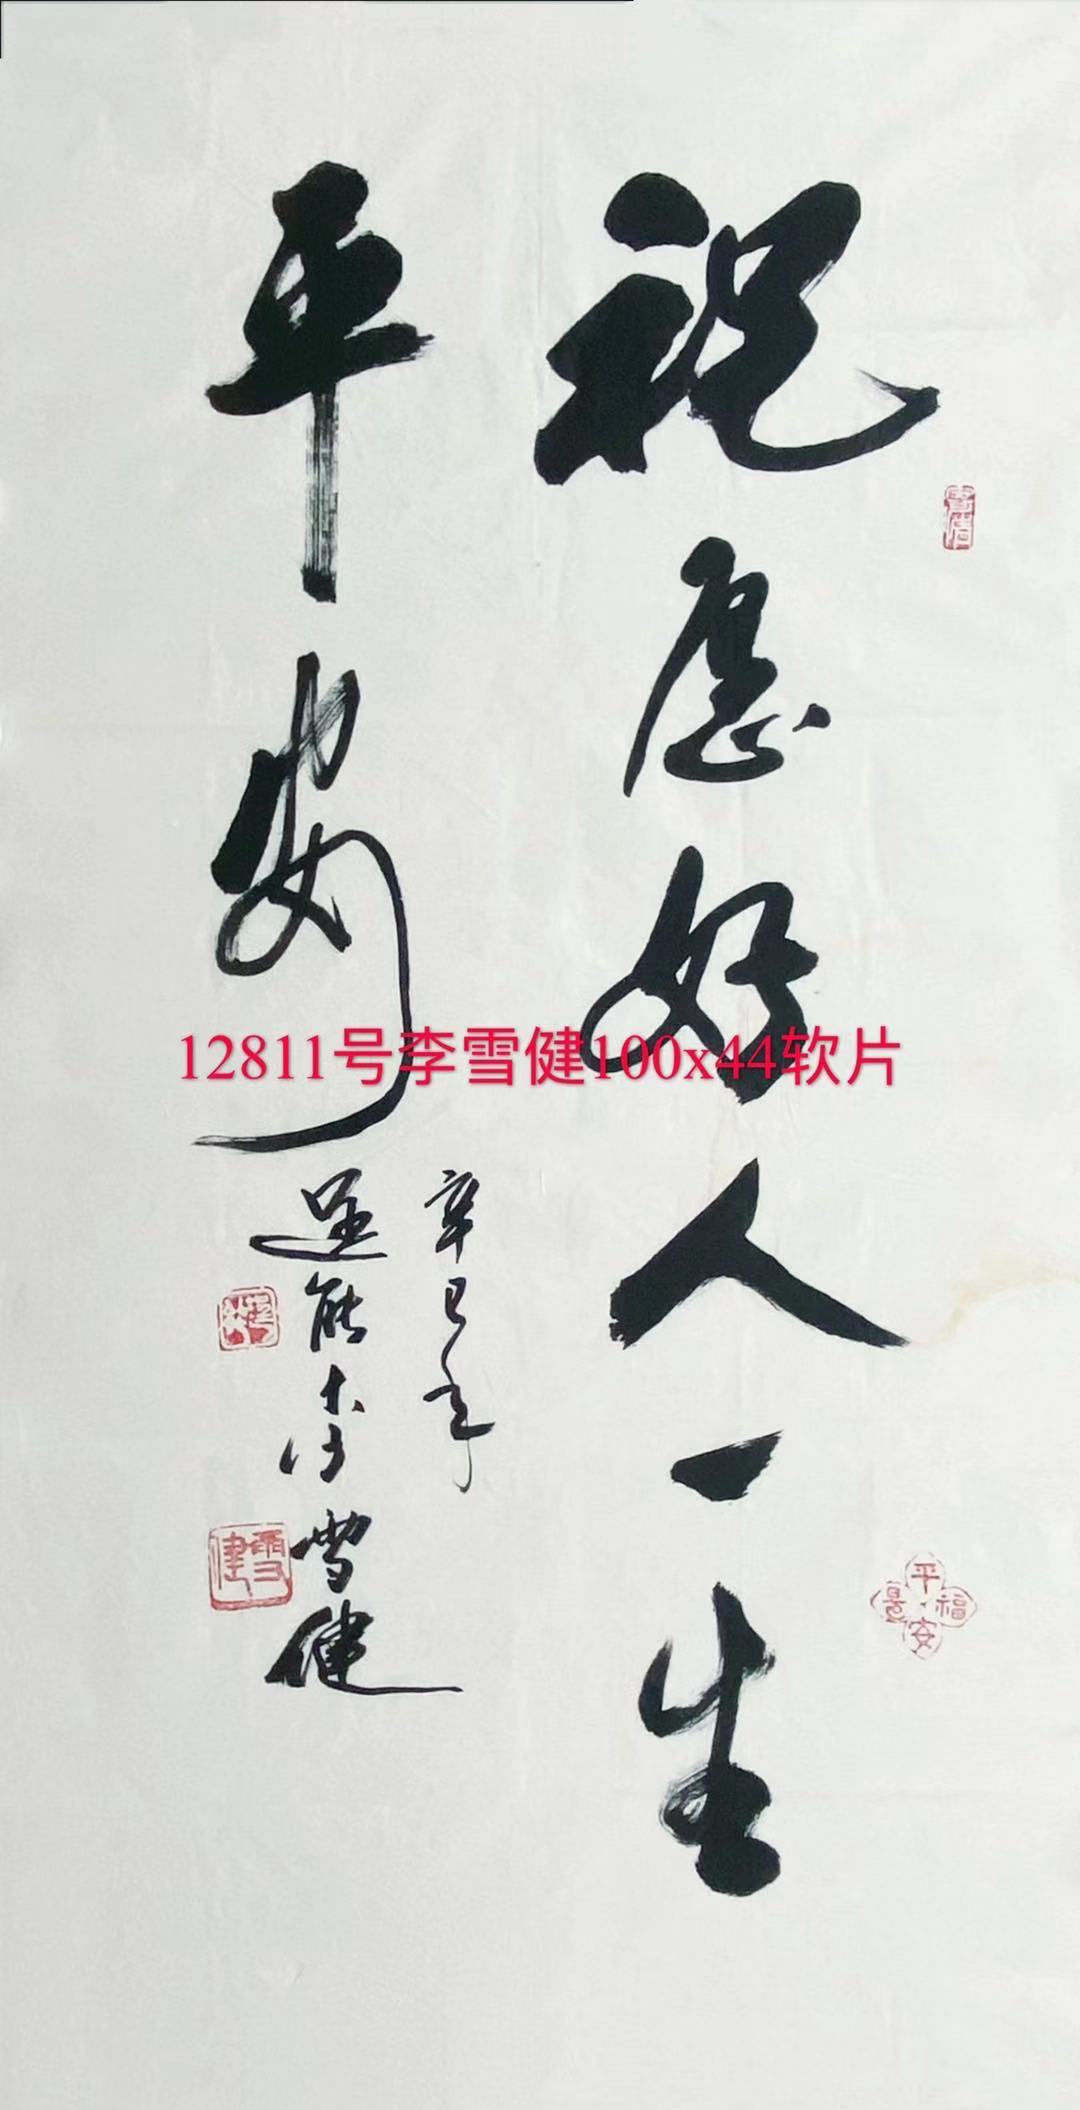 祝愿好人一生
平安
辛巳年
雪健
12811号李雪健100x44软片
雪健
平安
福